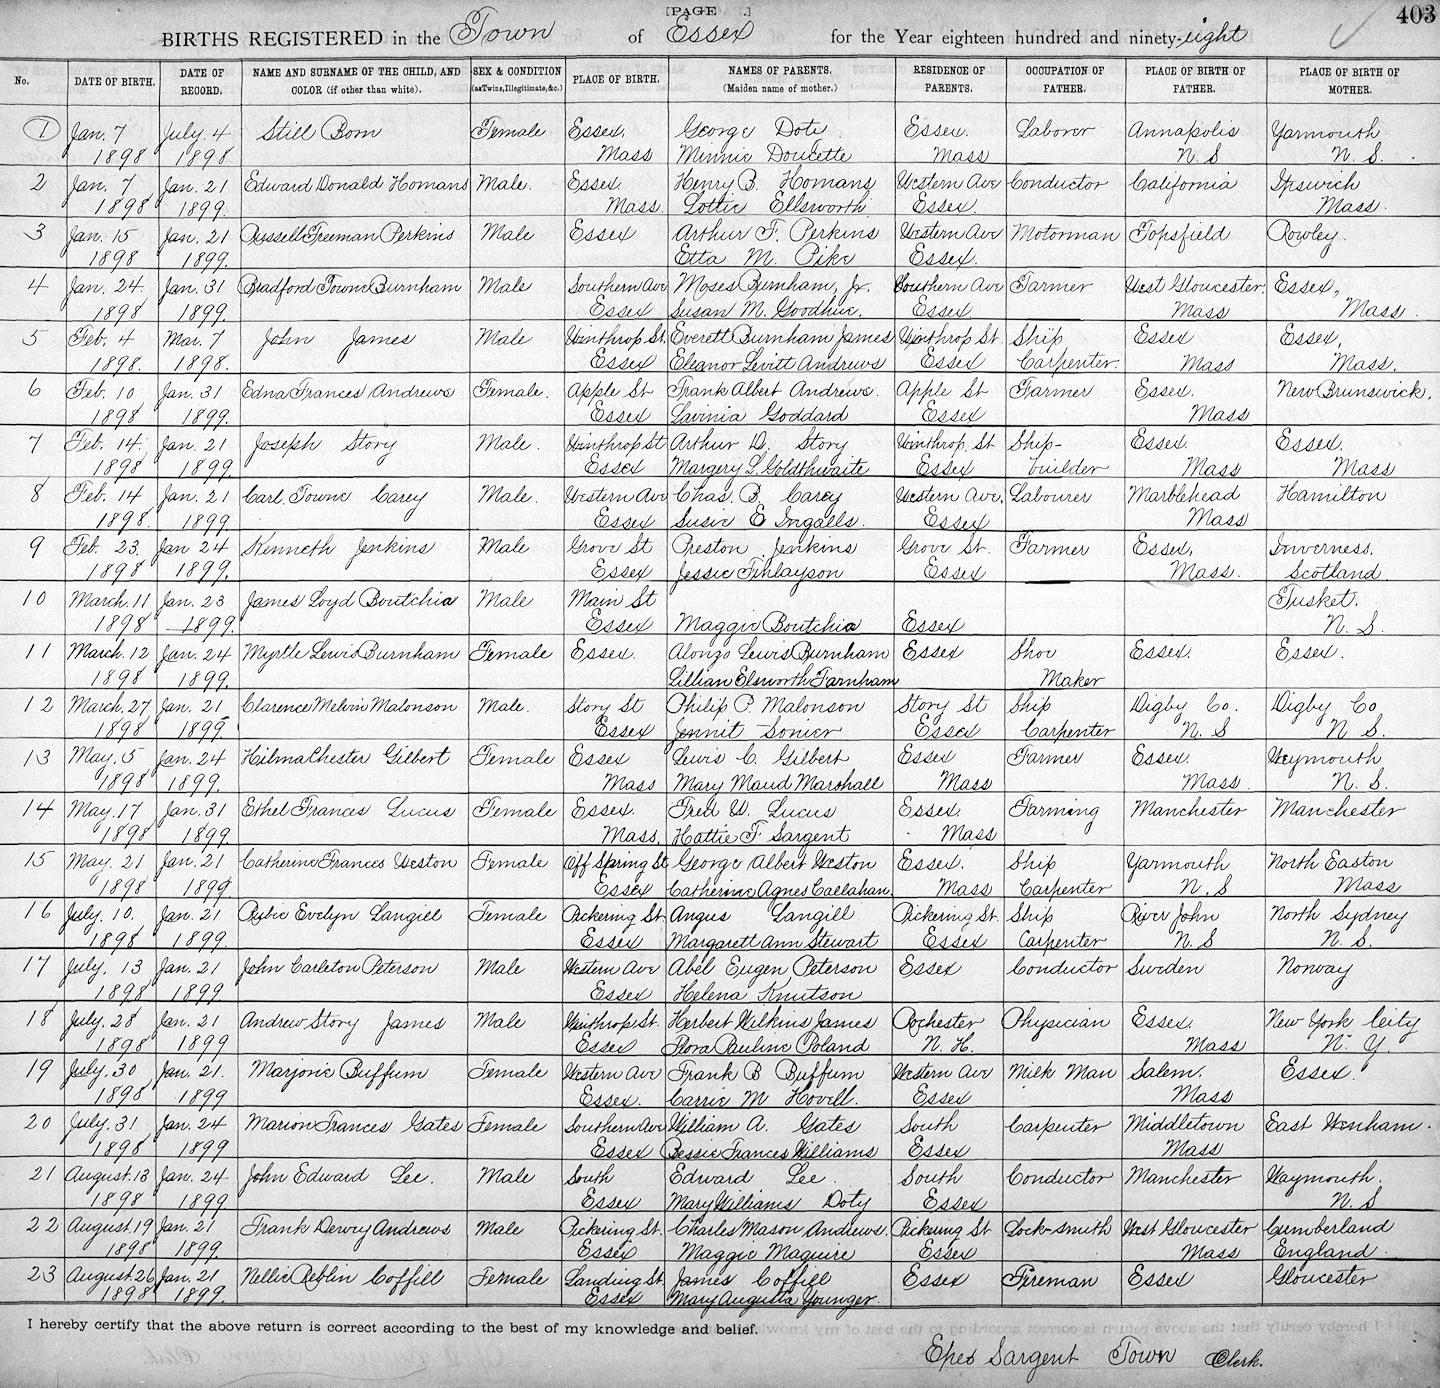 [PAGE .] 403
BIRTHS REGISTERED in the Town of Essex for the Year eighteen hundred and ninety-eight
No. DATE OF BIRTH. DATE OF RECORD. NAME AND SURNAME OF THE CHILD, AND COLOR (if other than white). SEX & CONDITION (as Twins, Illegitimate, &c.) PLACE OF BIRTH. NAMES OF PARENTS. (Maiden name of mother.) RESIDENCE OF PARENTS. OCCUPATION OF FATHER. PLACE OF BIRTH OF FATHER. PLACE OF BIRTH OF MOTHER.
1 Jan. 7 July. 4 Still Born Female Essex. George Doty Essex. Laborer Annapolis Yarmouth
1898 1898 Mass Minnie Doucette Mass N. S N. S.
2 Jan. 7 Jan. 21 Edward Donald Homans Male. Essex. Henry B. Homans Western Ave Conductor California Ipswich
1898 1899. Mass. Lottie Ellsworth Essex. Mass.
3 Jan. 15 Jan. 21 Russell Freeman Perkins Male Essex Arthur F. Perkins Western Ave Motorman Topsfield Rowley.
1898 1899. Etta M. Pike Essex.
4 Jan. 24. Jan. 31 Bradford Towne Burnham Male Southern Ave Moses Burnham, Jr. Southern Ave Farmer West Gloucester. Essex,
1898 1899. Essex Susan M. Goodhue. Essex. Mass Mass.
5 Feb. 4 Mar. 7 John James Male Winthrop St. Everett Burnham James Winthrop St. Ship Essex Essex,
1898. 1898. Essex Eleanor Levitt Andrews Essex Carpenter. Mass Mass.
6 Feb. 10 Jan. 31 Edna Frances Andrews Female. Apple St Frank Albert Andrews. Apple St Farmer Essex. New Brunswick.
1898 1899. Essex Lavinia Goddard Essex Mass
7 Feb. 14. Jan. 21 Joseph Story Male. Winthrop St Arthur D. Story Winthrop. St Ship- Essex. Essex.
1898 1899. Essex Margery L. Goldthwaite Essex builder Mass Mass
8 Feb. 14 Jan. 21 Carl Towne Carey Male. Western Ave Chas. B. Carey Western Ave. Labourer Marblehead Hamilton
1898. 1899. Essex Susie E Ingalls. Essex Mass
9 Feb. 23. Jan 24 Kenneth Jenkins Male Grove St Preston Jenkins Grove St. Farmer Essex, Inverness.
1898 1899. Essex Jessie Finlayson Essex Mass. Scotland.
10 March. 11 Jan. 23 James Loyd Boutchia Male Main St Tusket.
1898 1899. Essex Maggie Boutchia Essex N. S.
11 March. 12 Jan. 24 Myrtle Lewis Burnham Female Essex. Alonzo Lewis Burnham Essex Shoe Essex. Essex.
1898 1899. Lillian Elsworth Farnham Maker
12 March. 27 Jan. 21 Clarence Melvin Malonson Male. Story St Philip P. Malonson Story St Ship Digby Co. Digby Co
1898 1899. Essex Jennit Sonier Essex Carpenter N. S N S.
13 May. 5 Jan. 24 Hilma Chester Gilbert Female Essex Lewis C. Gilbert Essex Farmer Essex. Weymouth
1898 1899. Mass Mary Maud Marshall Mass Mass. N. S.
14 May. 17 Jan. 31 Ethel Frances Lucus Female Essex. Fred W. Lucus Essex. Farming Manchester Manchester
1898 1899. Mass, Hattie F Sargent Mass
15 May. 21 Jan. 21 Catherine Frances Weston Female Off Spring St George Albert Weston Essex. Ship Yarmouth North Easton
1898 1899. Essex Catherine Agnes Callahan. Mass Carpenter N. S Mass
16 July. 10. Jan. 21 Rubie Evelyn Langill Female Pickering St. Angus Langill Pickering St. Ship River John North Sydney
1898 1899. Essex Margarett Ann Stewart Essex Carpenter N. S N. S.
17 July. 13 Jan. 21 John Carleton Peterson Male Western Ave Abel Eugen Peterson Essex Conductor Sweden Norway
1898 1899 Essex Helena Knutson
18 July. 28 Jan. 21 Andrew Story James Male Winthrop St. Herbert Wilkins James Rochester Physician Essex. New York City
1898 1899 Essex Flora Pauline Poland N. H. Mass N. Y.
19 July. 30 Jan. 21. Marjorie Buffum Female Western Ave Frank B Buffum Western Ave Milk Man Salem. Essex.
1898 1899 Essex. Carrie M Hovill. Essex Mass
20 July. 31 Jan. 24 Marion Frances Gates Female Southern Ave William A. Gates South Carpenter Middletown East Wenham.
1898 1899 Essex Bessie Frances Williams Essex Mass
21 August. 13 Jan. 24 John Edward Lee. Male South Edward Lee South Conductor Manchester Waymouth.
1898 1899 Essex Mary Williams Doty Essex N. S
22 August. 19 Jan. 21 Frank Dewey Andrews Male Pickering St. Charles Mason Andrews. Pickering St Lock-smith West Gloucester Cumberland
1898 1899 Essex Maggie Maguire Essex Mass England.
23 August. 26 Jan. 21 Nellie Reblin Coffill Female Landing St. James Coffill Essex Fireman Essex Gloucester
1898 1899. Essex Mary Augusta Younger.
I hereby certify that the above return is correct according to the best of my knowledge and belief.
Epes Sargent Town Clerk.